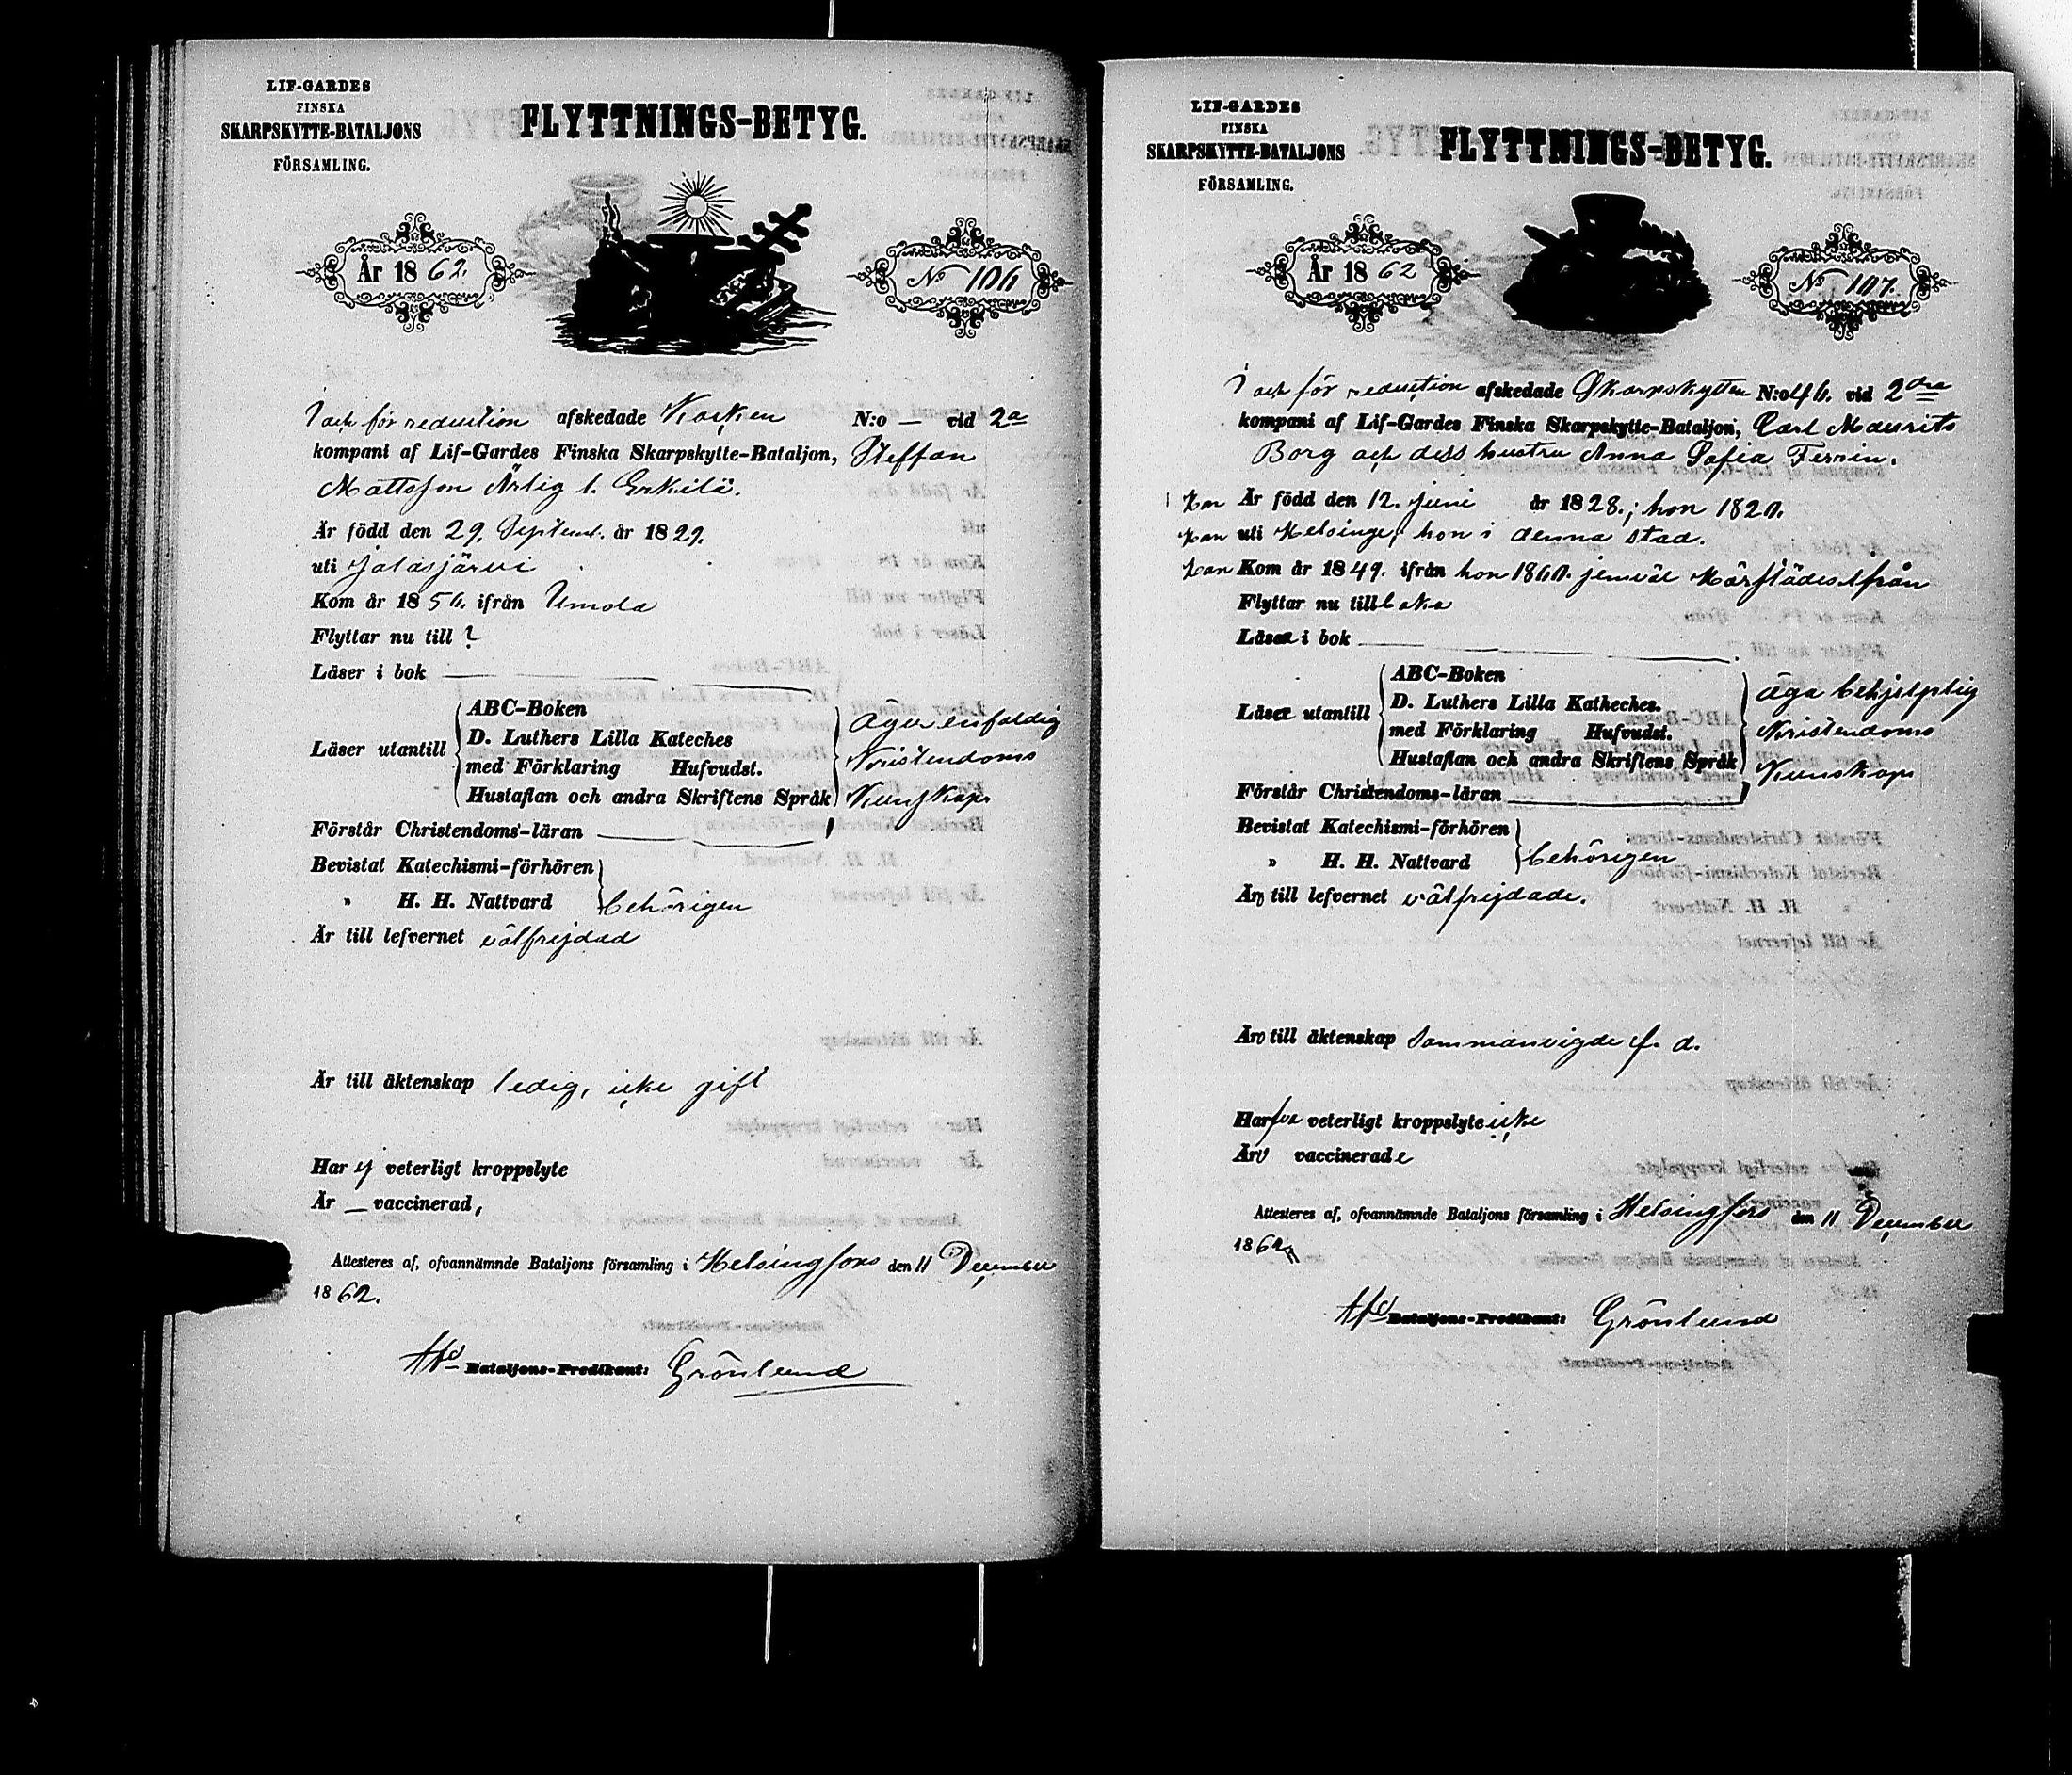 LIF-GARDES
FINSKA
SKARPSKYTTE-BATALJONS
FÖRSAMLING.
FLYTTNINGS-BETYG.
År 1862.
No 106
I och för reduction afskedade Kocken N:o — vid 2a
kompani af Lif-Gardes Finska Skarpskytte-Bataljon, Steffan
Mattsson Ärlig l. Erkilä.
Är född den 29. Septemb. år 1829.
uti Jalasjärvi
Kom år 1856. ifrån Umola
Flyttar nu till ?
Läser i bok
Läser utantill
ABC-Boken
D. Luthers Lilla Kateches
med Förklaring Hufvudst.
Hustaflan och andra Skriftens Språk
äger enfaldig
Kristendoms
Kunskap
Förstår Christendoms-läran
Bevistat Katechismi-förhören
" H. H. Nattvard
behörigen
Är till lefvernet välfrejdad
Är till äktenskap ledig, icke gift
Har ej veterligt kroppslyte
Är — vaccinerad,
Attesteres af, ofvannämnde Bataljons församling i Helsingfors den 11 December
1862.
Bataljons-Predikant: Grönlund
LIF-GARDES
FINSKA
SKARPSKYTTE-BATALJONS
FÖRSAMLING.
FLYTTNINGS-BETYG.
År 1862
No 107.
I och för reduction afskedade Skarpskytten N:o 46. vid 2dra
kompani af Lif-Gardes Finska Skarpskytte-Bataljon, Carl Maurits
Borg och dess hustru Anna Sofia Ferrin.
Han Är född den 12. Juni år 1828.; hon 1820.
Han uti Helsinge; hon i denna stad.
Han Kom år 1849. ifrån hon 1860. jemväl härstädes ifrån
Flyttar nu tillbaka
Läsa i bok
Läsa utantill
ABC-Boken
D. Luthers Lilla Katheches.
med Förklaring Hufvudst.
Hustaflan och andra Skriftens Språk
äga behjelplig
Kristendoms
Kunskap
Förstår Christendoms-läran
Bevistat Katechismi-förhören
" H. H. Nattvard
behörigen
Äro till lefvernet välfrejdade.
Äro till äktenskap sammanvigde f. d.
Harfva veterligt kroppslyte icke
Äro vaccinerade
Attesteres af, ofvannämnde Bataljons församling i Helsingfors den 11 December
1862
Bataljons-Predikant: Grönlund